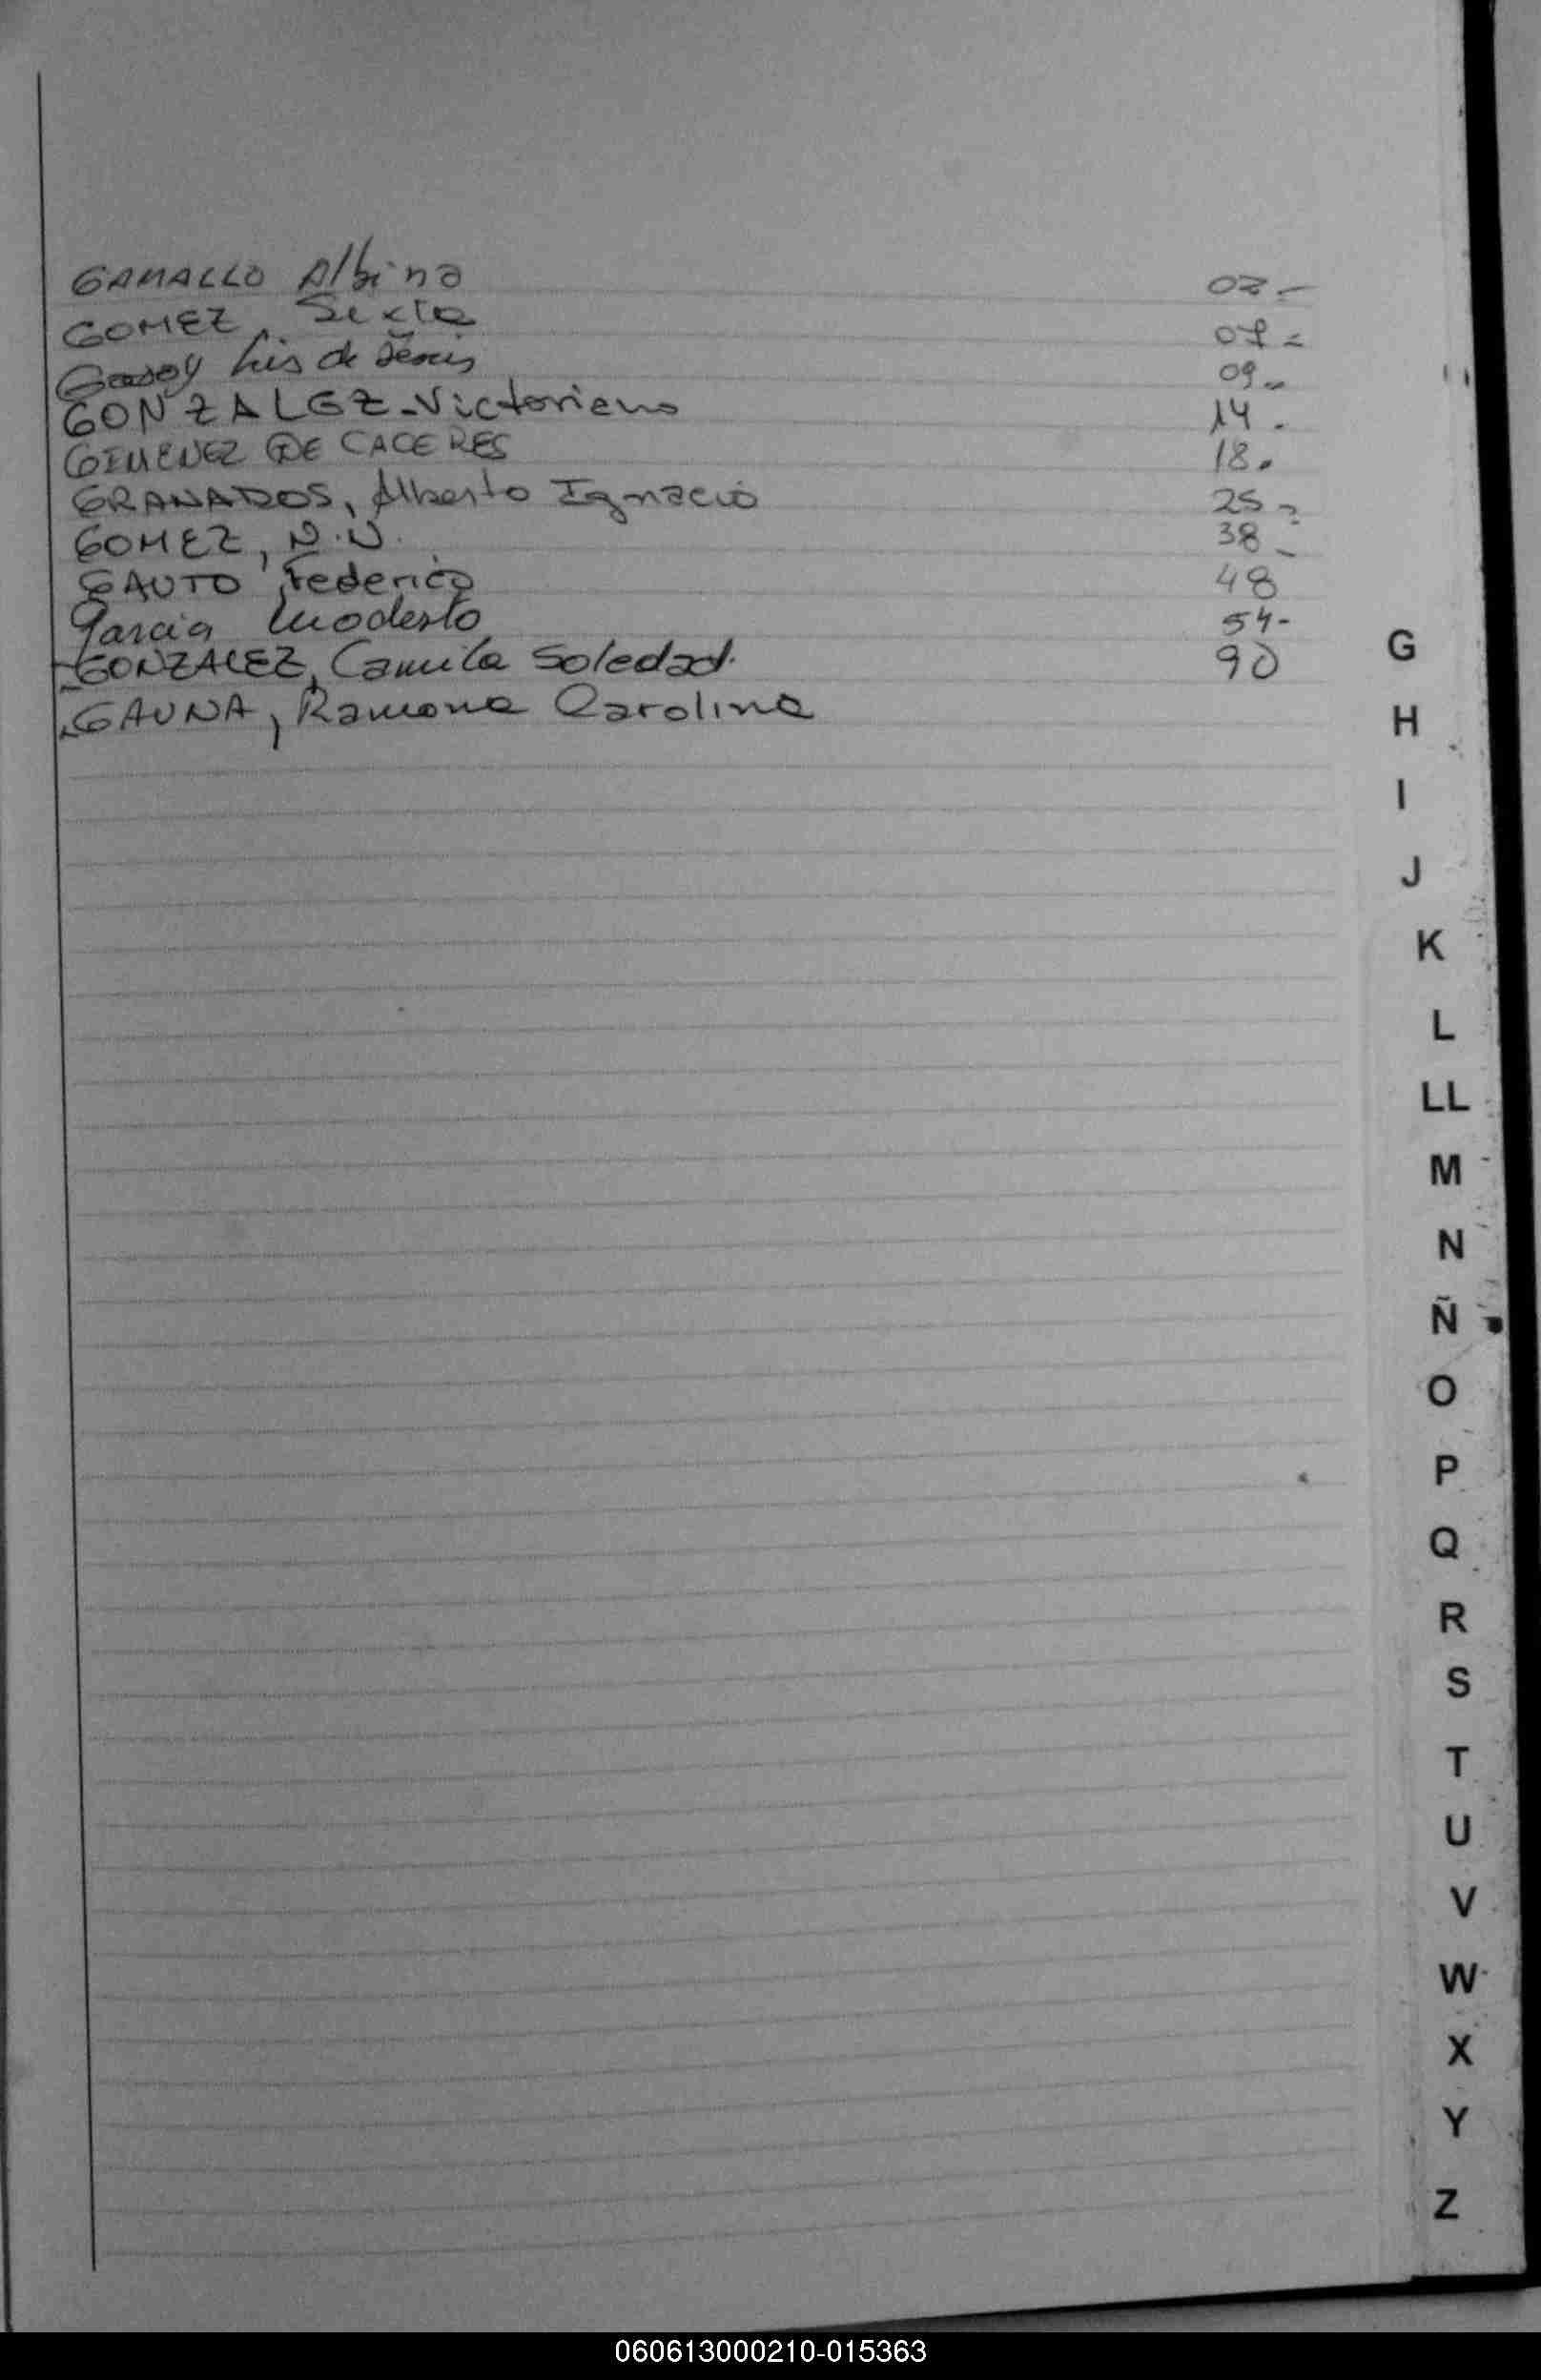 GAMALLO Albino 02-
GOMEZ, Sixta 07=
Godoy Luis de Jesús 09-
GONZALEZ-Victoriano 14.
GIMENEZ DE CACERES 18.
GRANADOS, Alberto Ignacio 25-
GOMEZ, N.N. 38-
GAUTO, Federico 48
Garcia Modesto 54-
-GONZALEZ, Camila Soledad. 90
GAUNA, Ramona Carolina
G
H
I
J
K
L
LL
M
N
Ñ
O
P
Q
R
S
T
U
V
W
X
Y
Z
060613000210-015363